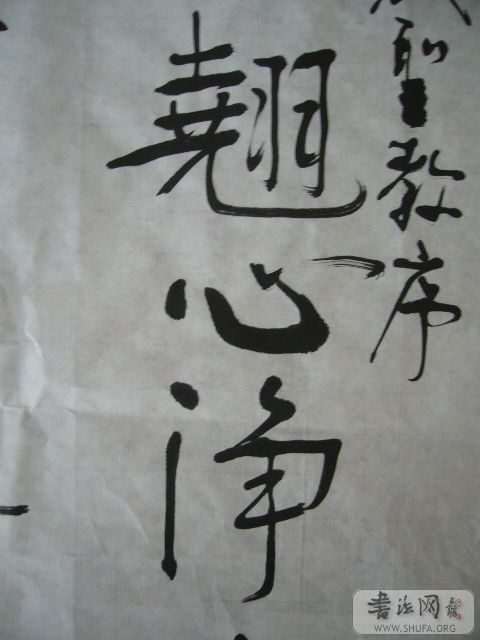 聖教序
翹心淨
書法网
WWW.SHUFA.ORG